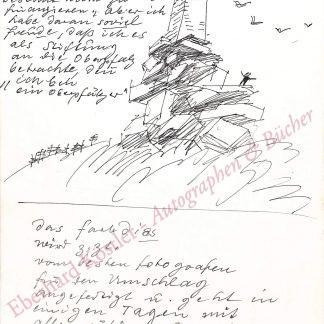 finanzieren, aber ich
habe daran soviel
Freude, daß ich es
als Stiftung
an die Oberpfalz
betrachte, den
ich bin
ein Oberpfälzer"
das farbdias
wird z.Zt.
vom besten Fotografen
für den Umschlag
angefertigt u. geht in
einigen Tagen mit
Eberhard Köstler - Autographen & Bücher